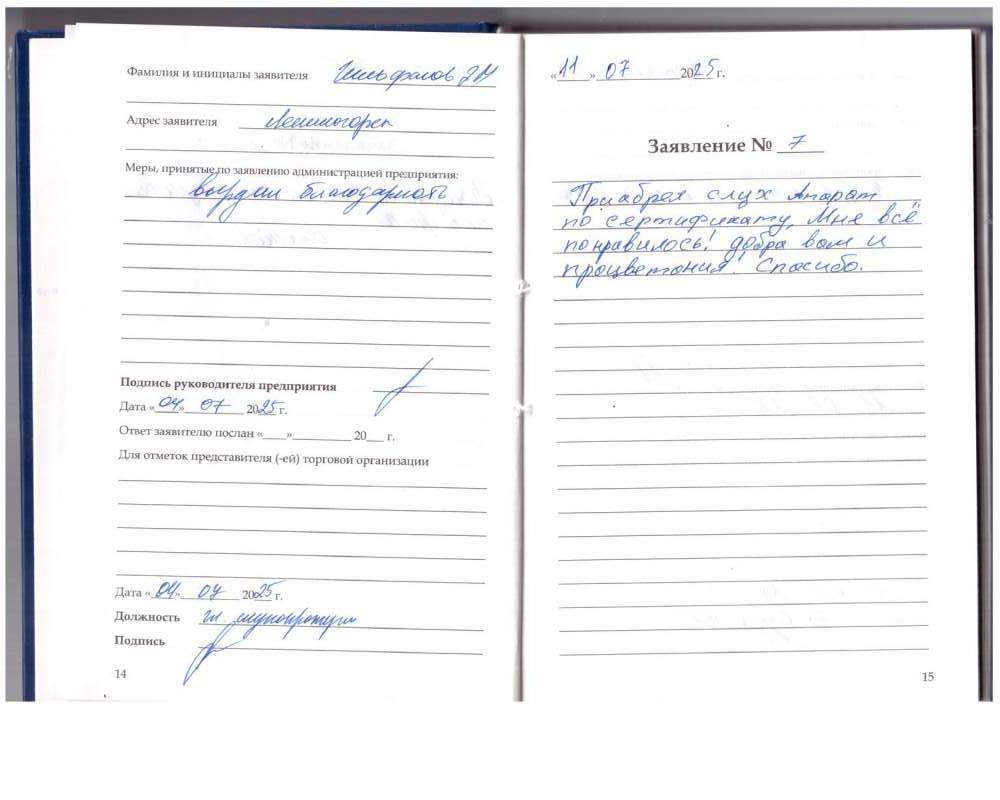 Фамилия и инициалы заявителя
Адрес заявителя Лениногорск
Меры, принятые по заявлению администрацией предприятия:
благодарность
Подпись руководителя предприятия
Дата «04» 07 2025 г.
Ответ заявителю послан «    »          20    г.
Для отметок представителя (-ей) торговой организации
Дата «04» 07 2025 г.
Должность
Подпись
14
«11» 07 2025 г.
Заявление № 7
Приабрел слух Апарат
по сертификату, Мне всё
понравилось! добра вам и
процветания! Спасибо.
15